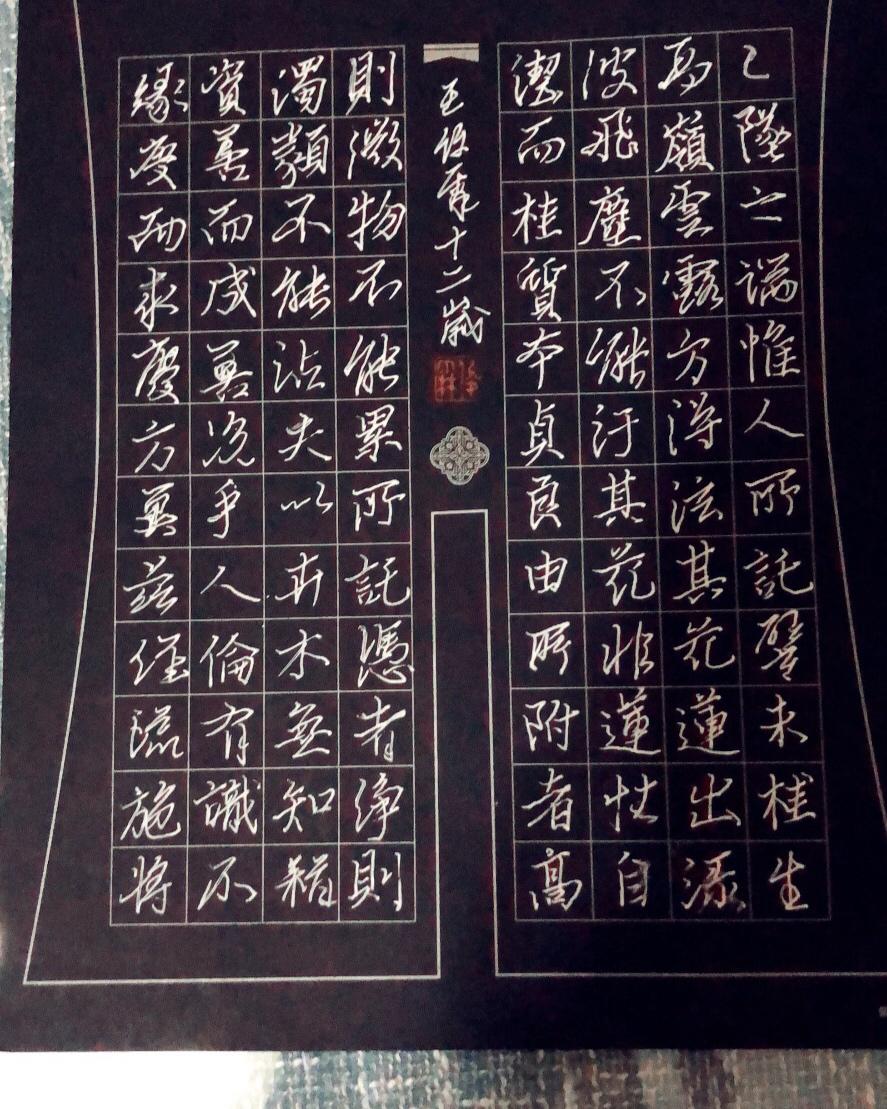 墜之端惟人所託譬夫桂生
高嶺雲露方得泫其花蓮出淥
波飛塵不能汙其非蓮性自
潔而桂質本貞良由所附者高
王十二歲
則微物不能累所託憑者淨則
濁類不能沾夫以卉木無知猶
資善而成善況乎人倫有識不
緣慶而求慶方冀茲經流施將